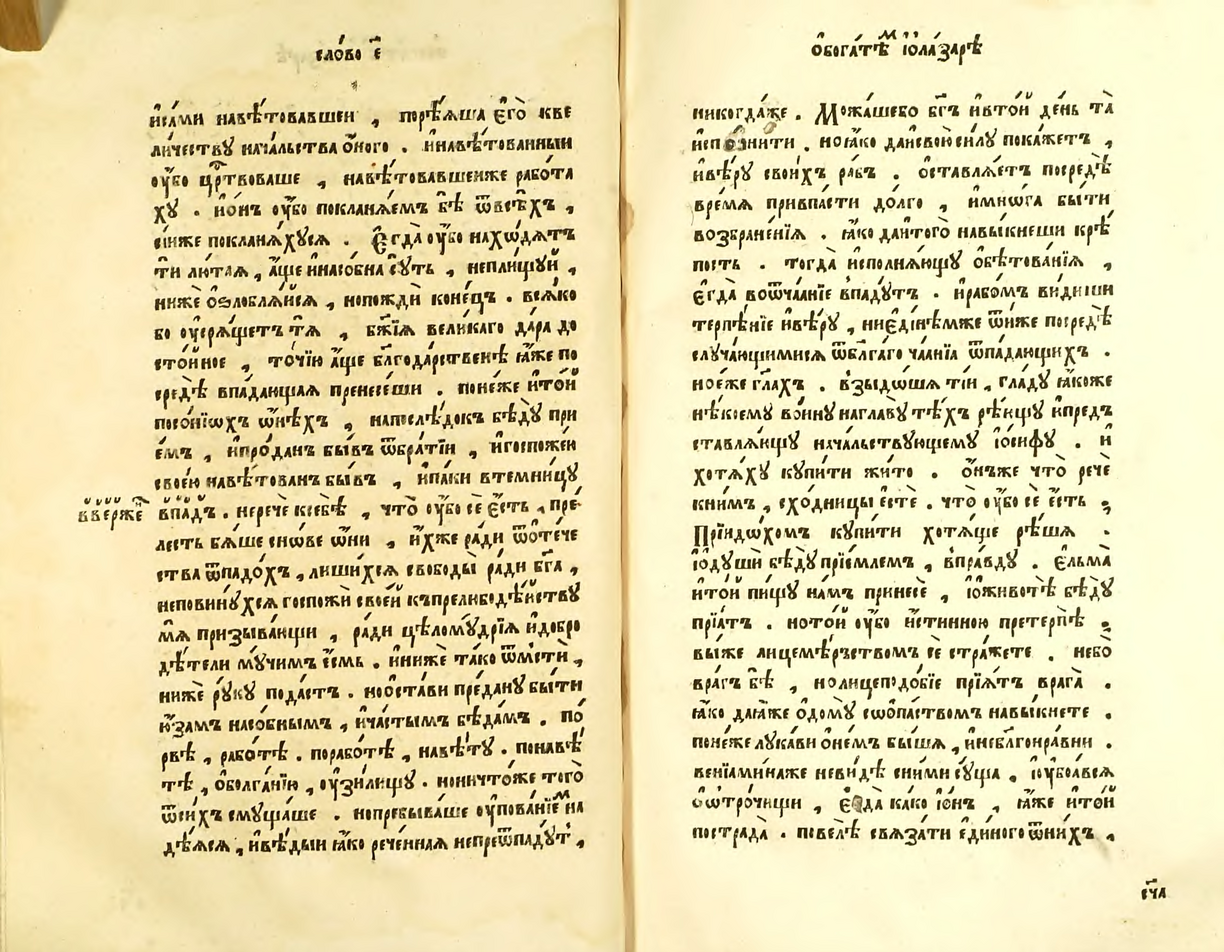 сло́во є҃
и҆са́ми навѣ́товавшеи , порѣ́ѧша є҆го̀ кве
ли́чествꙋ нача́льства ѻ҆́ного . и҆навѣ́тованныи
ᲂу҆́бо црⷭ҇твоваше , навѣ́товавшеиже рабо́та
хꙋ . и҆ѻ҆́нъ ᲂу҆́бо покланѧ́емъ бѣ̀ ѿвсѣ́хъ ,
сі́иже покланѧ́хꙋсѧ . Є҆гда̀ ᲂу҆́бо нахѡ́дѧтъ
ти лю́таѧ , а҆́ще и҆насо́бна сꙋ́ть , непли́щꙋй ,
нижѐ ѻ҆ѕлоблѧ́йсѧ , нопождѝ коне́цъ . всѧ́ко
бо ᲂу҆срѧ́щетъ тѧ̀ , бж҃їѧ вели́каго да́ра до
сто́йное , то́чїю а҆́ще бл҃года́рственѣ ꙗ҆́же по
средѣ̀ впа́дающаѧ пренесе́ши . поне́же и҆то́й
посо́нїѡхъ ѻ҆́нѣхъ , напослѣ́докъ бѣ́дꙋ прі
е́мъ , и҆про́данъ бы́въ ѿбра́тїи , и҆госпоже́ю
свое́ю навѣ́тованъ бы́въ , и҆па́ки втемни́цꙋ
вверже
впа́дъ . неречѐ ксебѣ̀ , что̀ ᲂу҆́бо сѐ є҆́сть , пре́
лесть бѧ́ше сно́ве ѻ҆́ни , и҆́хже ра́ди ѿѻте́че
ства ѿпадо́хъ , лиши́хсѧ свобо́ды ра́ди бг҃а ,
неповинꙋ́хсѧ госпожѝ свое́й къпрелюбодѣ́йствꙋ
мѧ̀ призыва́ющи , ра́ди цѣломꙋ́дрїѧ и҆добро
дѣ́тели мꙋ́чимъ є҆́смь . и҆нижѐ та́ко ѿмстѝ ,
нижѐ рꙋ́кꙋ пода́стъ . ноѻ҆ста́ви пре́данꙋ бы́ти
ю҆́замъ насо́бнымъ , и҆ча́стымъ бѣда́мъ . по́
рвѣ , рабо́тѣ . порабо́тѣ , навѣ́тꙋ . понавѣ́
тѣ , ѻ҆болга́нїю , ᲂу҆зи́лищꙋ . нониčто́же того̀
ѿси́хъ смꙋща́ше . нопребыва́ше ᲂу҆пова́нїемъ на
дѣ́ѧсѧ , и҆вѣ́дыи ꙗ҆́ко рече́ннаѧ непреѿпадꙋ́тъ ,
ѻ҆бога́тѣмъ і҆ѻла́зарѣ
никогда́же . Можа́шебо бг҃ъ и҆вто́й де́нь та̀
и҆спо́лнити . ноꙗ҆́ко даисвою̀си́лꙋ пока́жетъ ,
и҆вѣ́рꙋ свои́хъ ра́бъ . ѻ҆ставлѧ́етъ посредѣ̀
вре́мѧ привпа́сти до́лго , и҆мнѡ́га бы́ти
возбране́нїѧ . ꙗ҆́ко даито́го навы́кнеши крѣ́
пость . тогда̀ и҆сполнѧ́ющꙋ ѻ҆бѣ́тованїѧ ,
є҆гда̀ воѿча́анїе впадꙋ́тъ . и҆рабо́мъ ви́диши
терпѣ́нїе и҆вѣ́рꙋ , ниє҆ди́нѣмже ѿниже посредѣ̀
слꙋча́ющимисѧ ѿбл҃га́го ча́анїѧ ѿпада́ющихъ .
ноє҆́же гл҃ахъ . взыдѡ́шѧ ті́и , гла́дꙋ ꙗ҆́коже
нѣ́коемꙋ во́инꙋ наглавꙋ̀ тѣ́хъ рѣ́ющꙋ и҆предъ
ставлѧ́ющꙋ нача́льствꙋющемꙋ і҆ѻ́сифꙋ . и҆
хотѧ́хꙋ кꙋпи́ти жи́то . ѻ҆́нъже что̀ речѐ
кни́мъ , схо́дницы є҆стѐ . что̀ ᲂу҆́бо сѐ є҆́сть ;
Прїидѡ́хомъ кꙋпи́ти хотѧ́ще рѣ́шѧ .
і҆ѻдꙋшѝ бѣ́дꙋ прїе́млемъ , впра́вдꙋ . є҆льма̀
и҆то́й пи́щꙋ на́мъ принесѐ , і҆ѻживотѣ̀ бѣ́дꙋ
прїѧ́тъ . ното́й ᲂу҆́бо и҆́стинною претерпѣ̀ ;
вы́же лицемѣ́рствомъ сѐ стра́жете . небо̀
вра́гъ бѣ̀ , нолицеподо́бїе прїѧ́тъ врага̀ .
ꙗ҆́ко даꙗ҆́же ѻ҆до́мꙋ сѡѻпа́ствомъ навы́кнете .
поне́же лꙋка́ви ѻ҆не́мъ бы́шѧ , и҆небл҃гонра́вни .
венїами́наже неви́дѣ сни́ми сꙋ́ща , і҆ᲂу҆боѧ́всѧ
ѻѻтро́чищи , є҆да̀ ка́ко і҆ѻ́нъ , ꙗ҆́же и҆то́й
пострада̀ . повелѣ̀ свѧза́ти є҆ди́ного ѿни́хъ ,
сч҃а